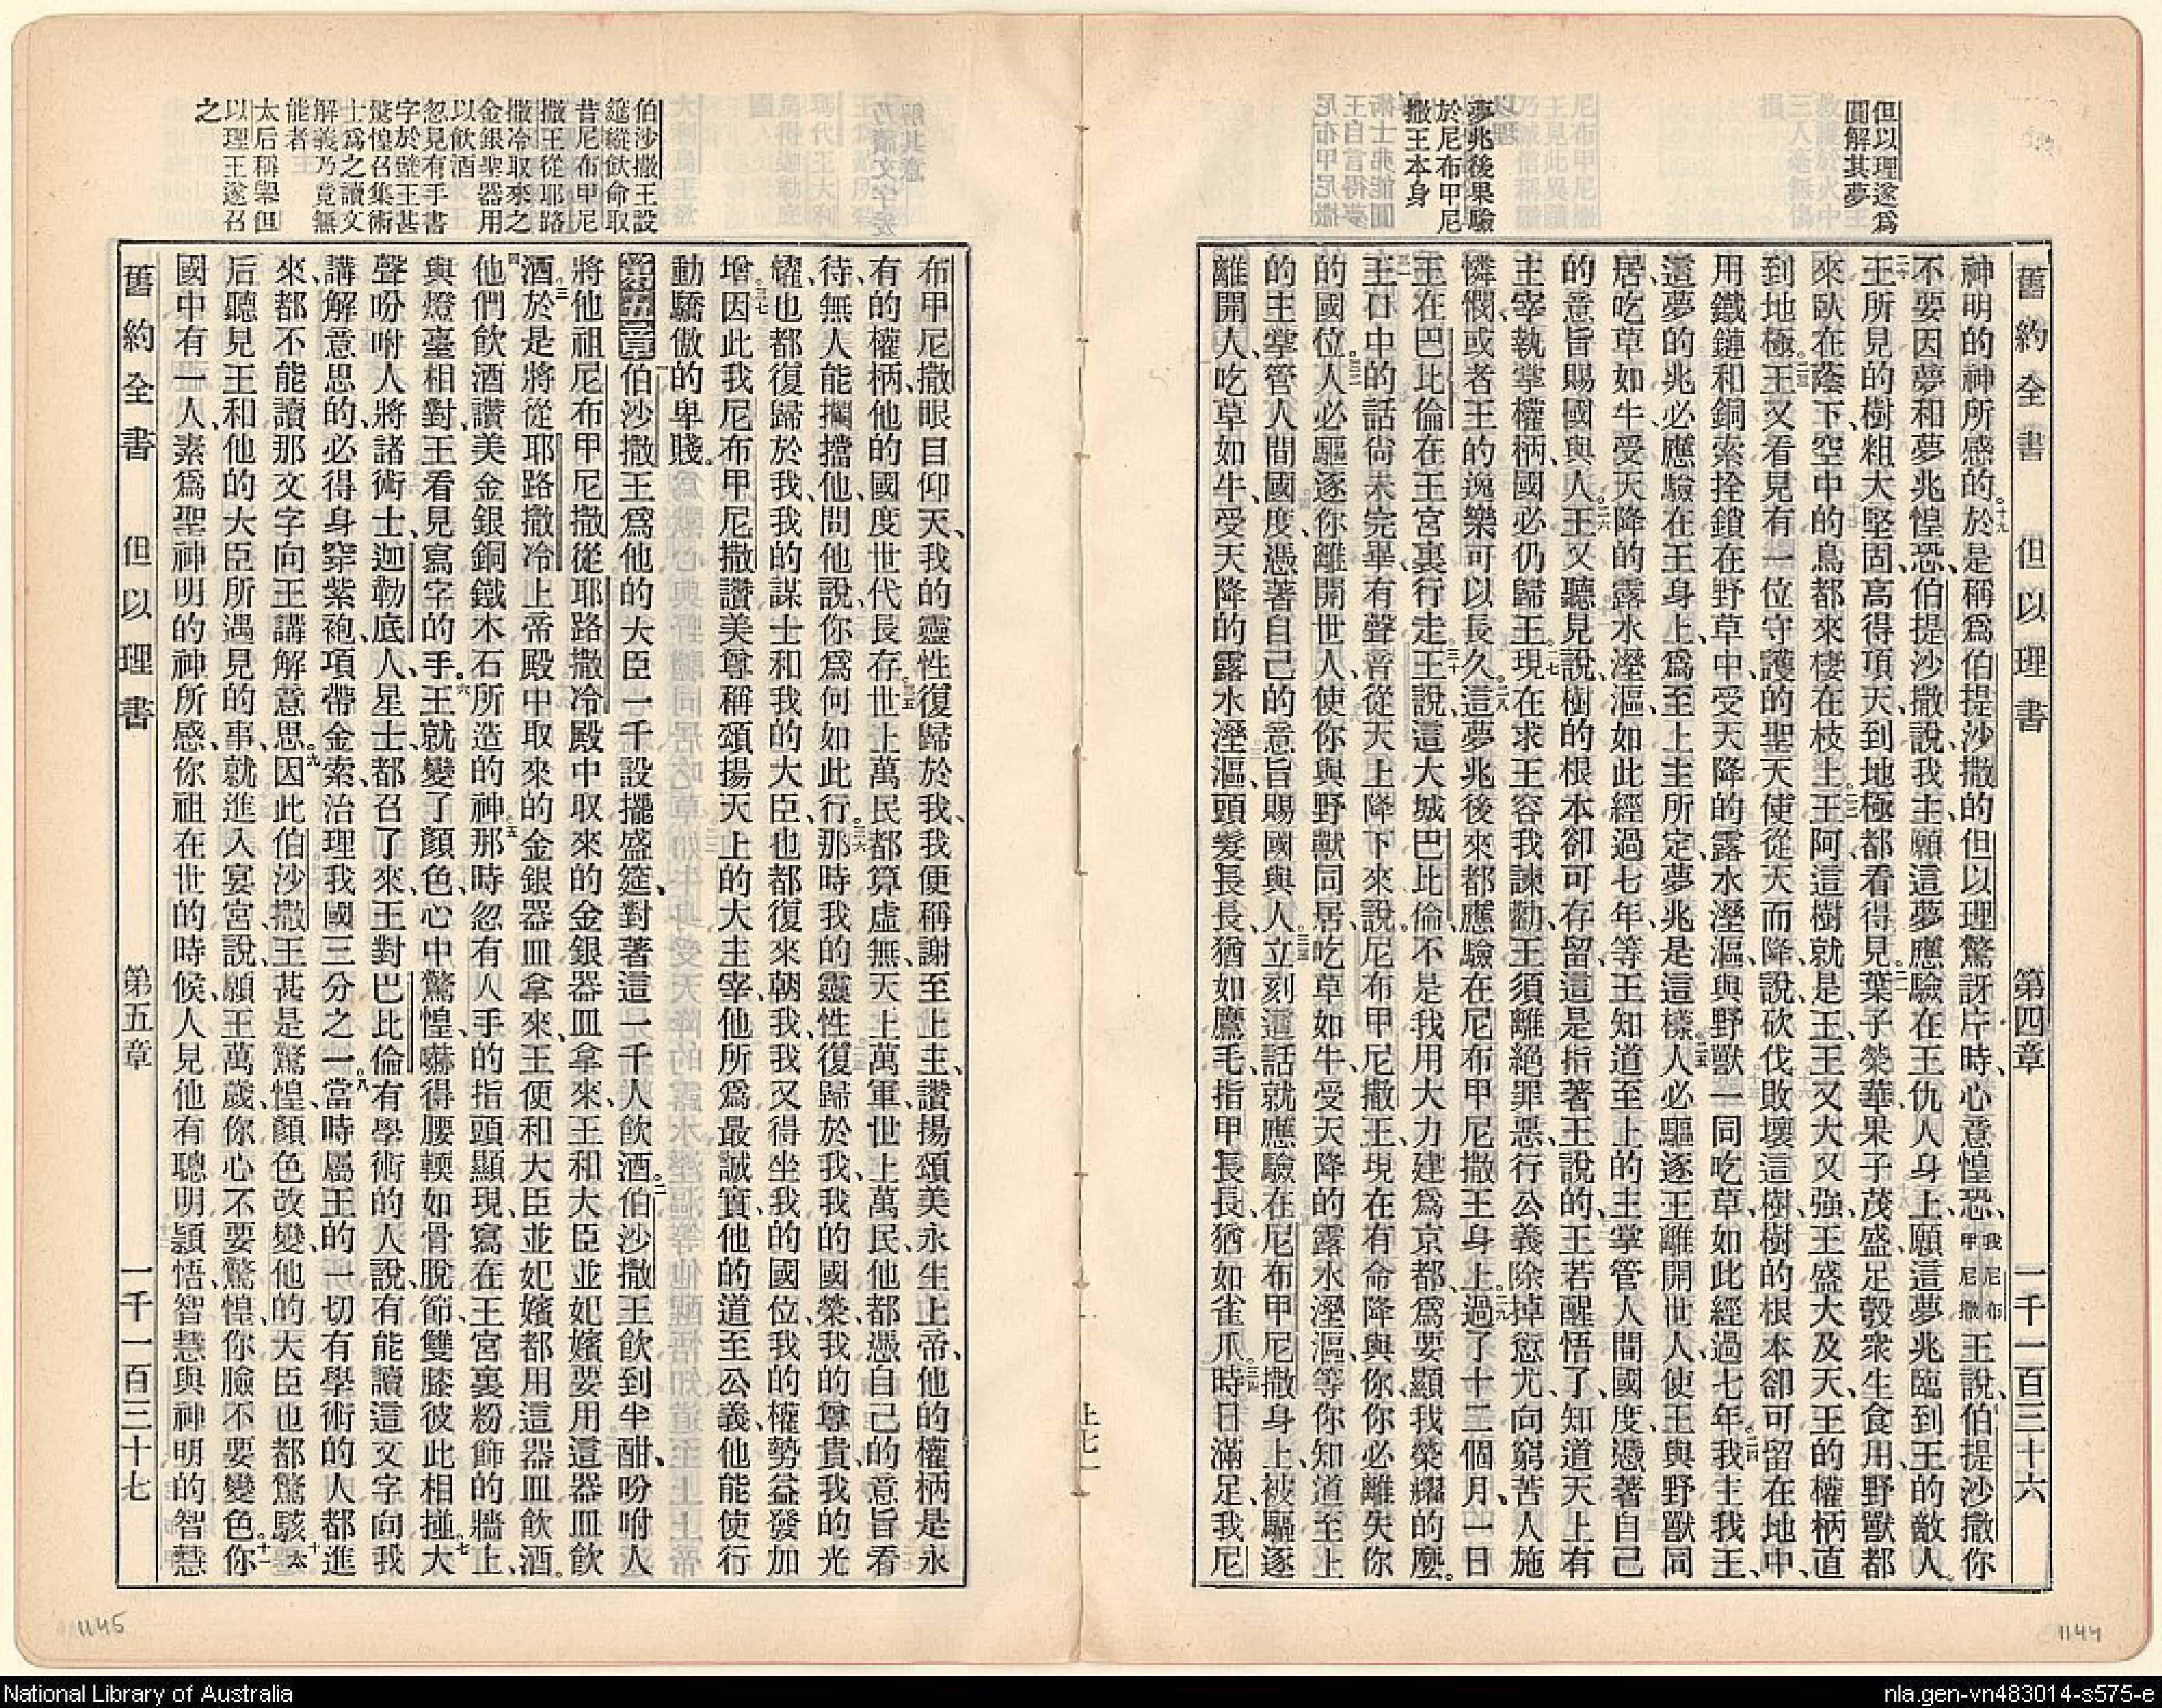 但以理遂爲
圓解其夢
夢兆後果驗
於尼布甲尼
撒王本身
舊約全書 但以理書 第四章 一千一百三十六
神明的神所感的。十九於是稱爲伯提沙撒的但以理驚訝片時、心意惶恐、我尼布甲尼撒王說、伯提沙撒你
不要因夢和夢兆惶恐、伯提沙撒說、我主願這夢應驗在王仇人身上、願這夢兆臨到王的敵人。
二十王所見的樹粗大堅固、高得頂天、到地極都看得見。二一葉子榮華、果子茂盛、足彀衆生食用、野獸都
來臥在蔭下、空中的鳥都來棲在枝上。二二王阿、這樹就是王、王又大又強、王盛大及天、王的權柄直
到地極。二三王又看見有一位守護的聖天使從天而降、說、砍伐敗壞這樹、樹的根本卻可留在地中、
用鐵鏈和銅索拴鎖在野草中、受天降的露水溼漚、與野獸一同吃草、如此經過七年。二四我主我王、
這夢的兆必應驗在王身上、爲至上主所定、夢兆是這樣。二五人必驅逐王離開世人、使王與野獸同
居、吃草如牛、受天降的露水溼漚、如此經過七年、等王知道至上的主掌管人間國度、憑著自己
的意旨賜國與人。二六王又聽見說、樹的根本卻可存留、這是指著王說的、王若醒悟了、知道天上有
主宰執掌權柄、國必仍歸王。二七現在求王容我諫勸、王須離絕罪惡、行公義除掉愆尤、向窮苦人施
憐憫、或者王的逸樂可以長久。二八這夢兆後來都應驗在尼布甲尼撒王身上。二九過了十二個月、一日
王在巴比倫在王宮裏行走。三十王說、這大城巴比倫、不是我用大力建爲京都、爲要顯我榮耀的麽。
三一王口中的話尙未完畢、有聲音從天上降下來說、尼布甲尼撒王、現在有命降與你、你必離失你
的國位。三二人必驅逐你離開世人、使你與野獸同居、吃草如牛、受天降的露水溼漚、等你知道至上
的主掌管人間國度、憑著自己的意旨賜國與人。三三立刻這話就應驗在尼布甲尼撒身上、被驅逐
離開人、吃草如牛、受天降的露水溼漚、頭髮長長、猶如鷹毛、指甲長長、猶如雀爪。三四時日滿足、我尼
伯沙撒王設
筵縱飲命取
昔尼布甲尼
撒王從耶路
撒冷取來之
金銀聖器用
以飲酒
忽見有手書
字於壁王甚
驚惶召集術
士爲之讀文
解義乃竟無
能者
太后稱舉但
以理王遂召
之
布甲尼撒眼目仰天、我的靈性復歸於我、我便稱謝至上主、讚揚頌美永生上帝、他的權柄是永
有的權柄、他的國度世代長存。三五世上萬民都算虛無、天上萬軍、世上萬民、他都憑自己的意旨看
待、無人能攔擋他、問他說、你爲何如此行。三六那時我的靈性復歸於我、我的國榮、我的尊貴、我的光
耀也都復歸於我、我的謀士和我的大臣、也都復來朝我、我又得坐我的國位、我的權勢益發加
增。三七因此我尼布甲尼撒讚美尊稱頌揚天上的大主宰、他所爲最誠實、他的道至公義、他能使行
動驕傲的卑賤。
第五章 一伯沙撒王爲他的大臣一千設擺盛筵、對著這一千人飲酒。二伯沙撒王飲到半酣、吩咐人
將他祖尼布甲尼撒從耶路撒冷殿中取來的金銀器皿拿來、王和大臣並妃嬪要用這器皿飲
酒。三於是將從耶路撒冷上帝殿中取來的金銀器皿拿來、王便和大臣並妃嬪都用這器皿飲酒。
四他們飲酒、讚美金銀銅鐵木石所造的神。五那時忽有人手的指頭顯現、寫在王宮裏粉飾的牆上、
與燈臺相對、王看見寫字的手。六王就變了顏色、心中驚惶、嚇得腰輭如骨脫節、雙膝彼此相撞。七大
聲吩咐人將諸術士、迦勒底人、星士、都召了來、王對巴比倫有學術的人說、有能讀這文字向我
講解意思的、必得身穿紫袍、項帶金索、治理我國三分之一。八當時屬王的一切有學術的人都進
來、都不能讀那文字向王講解意思。九因此伯沙撒王甚是驚惶、顏色改變、他的大臣也都驚駭。十太
后聽見王和他的大臣所遇見的事、就進入宴宮說、願王萬歲、你心不要驚惶、你臉不要變色。十一你
國中有一人、素爲聖神明的神所感、你祖在世的時候、人見他有聰明穎悟、智慧與神明的智慧
舊約全書 但以理書 第五章 一千一百三十七
1145
1144
National Library of Australia
nla.gen-vn483014-s575-e